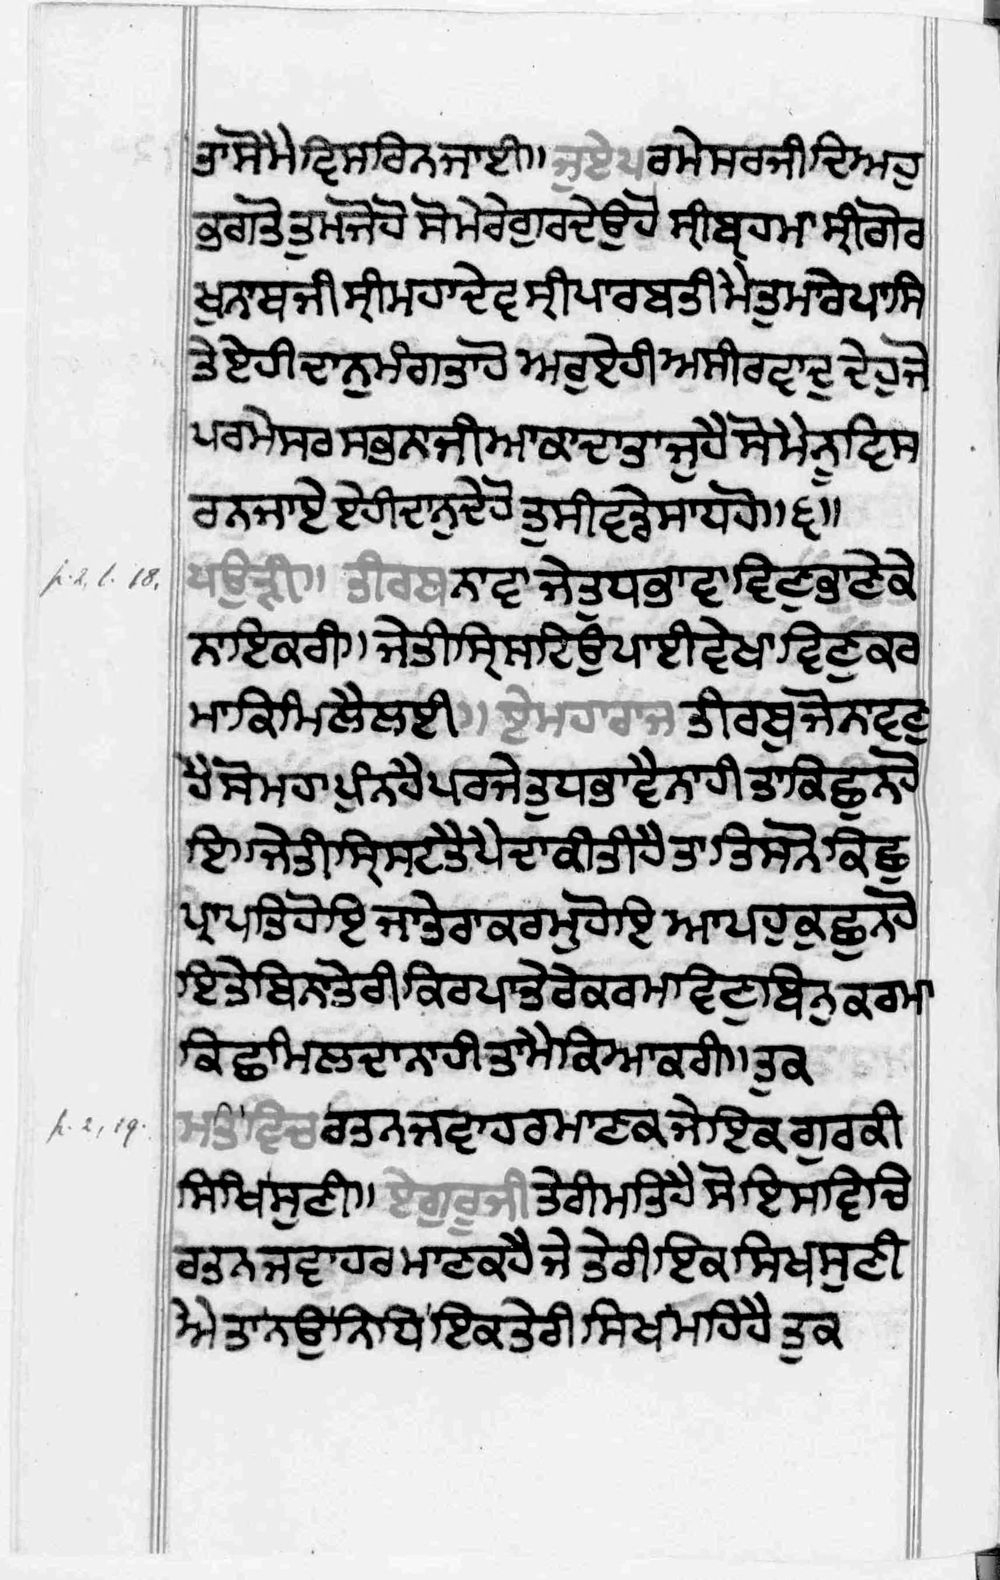 ਤਾਸੋਮੈਵਿਸਰਿਨਜਾਈ॥ਜੁਏਪਰਮੇਸਰਜੀਦਿਅਹੁ
ਭਗਤੋਤੁਮਜੋਹੋ ਸੋਮੇਰੇਗੁਰਦੇਉਹੋ ਸ੍ਰੀਬ੍ਰਹਮਾ ਸ੍ਰੀਗੋਰ
ਖੁਨਾਥਜੀਸ੍ਰੀਮਹਾਦੇਵਸ੍ਰੀਪਾਰਬਤੀਮੈਤੁਮਾਰੇਪਾਸਿ
ਤੇਏਹੀਦਾਨੁਮੰਗਤਾਹੋ ਅਰੁਏਹੀਅਸੀਰਵਾਦੁ ਦੇਹੁਜੋ
ਪਰਮੇਸਰਸਭਨਜੀਆਕਾਦਾਤਾਜੁਹੈਸੋਮੈਨੂਵਿਸ
ਰਨਜਾਏਏਹੀਦਾਨੁਦੇਹੋਤੁਸੀਵਡੇਸਾਧਹੋ॥੬॥
p. 2, l. 18. ਪਉੜੀ॥ ਤੀਰਥਨਾਵਾਜੇਤੁਧਭਾਵਾਵਿਣੁਭਾਣੇਕੇ
ਨਾਇਕਰੀ॥ਜੇਤੀਸ੍ਰਿਸਟਿਉਪਾਈਵੇਖਾਵਿਣੁਕਰ
ਮਾਕਿਮਿਲੈਲਈ॥ਏਮਹਾਰਾਜਤੀਰਥੁਜੋਨਾਵਣੁ
ਹੈਸੋਮਹਾਪੁੰਨਹੈਪਰਜੇਤੁਧਭਾਵੈਨਾਹੀਤਾਕਿਛੁਨਹੋ
ਇ॥ਜੇਤੀਸ੍ਰਿਸਟੇਤੈਪੈਦਾਕੀਤੀਹੈਤਾਤਿਸਨੋਕਿਛੁ
ਪ੍ਰਾਪਤਿਹੋਇਜਾਤੇਰਾਕਰਮੁਹੋਇਆਪਹੁਕੁਛੁਨਹੋ
ਇਤੇਬਿਨਾਤੇਰੀਕਿਰਪਾਤੇਰੇਕਰਮਾਵਿਣੁਬਿਨੁਕਰਮਾ
ਕਿਛਮਿਲਦਾਨਾਹੀਤਾਮੈਕਿਆਕਰੀ॥ਤੁਕ
p. 2, 19. ਮਤਿਵਿਚਰਤਨਜਵਾਹਰਮਾਣਕਜੇਇਕਗੁਰਕੀ
ਸਿਖਸੁਣੀ॥ਏਗੁਰੂਜੀਤੇਰੀਮਤਿਹੈਸੋਇਸਵਿਚਿ
ਰਤਨਜਵਾਹਰਮਾਣਕਹੈਜੇਤੇਰੀਇਕਸਿਖਸੁਣੀ
ਐਤਾਨਉਨਿਧਿਇਕਤੇਰੀਸਿਖਮਹਿਹੈਤੁਕ